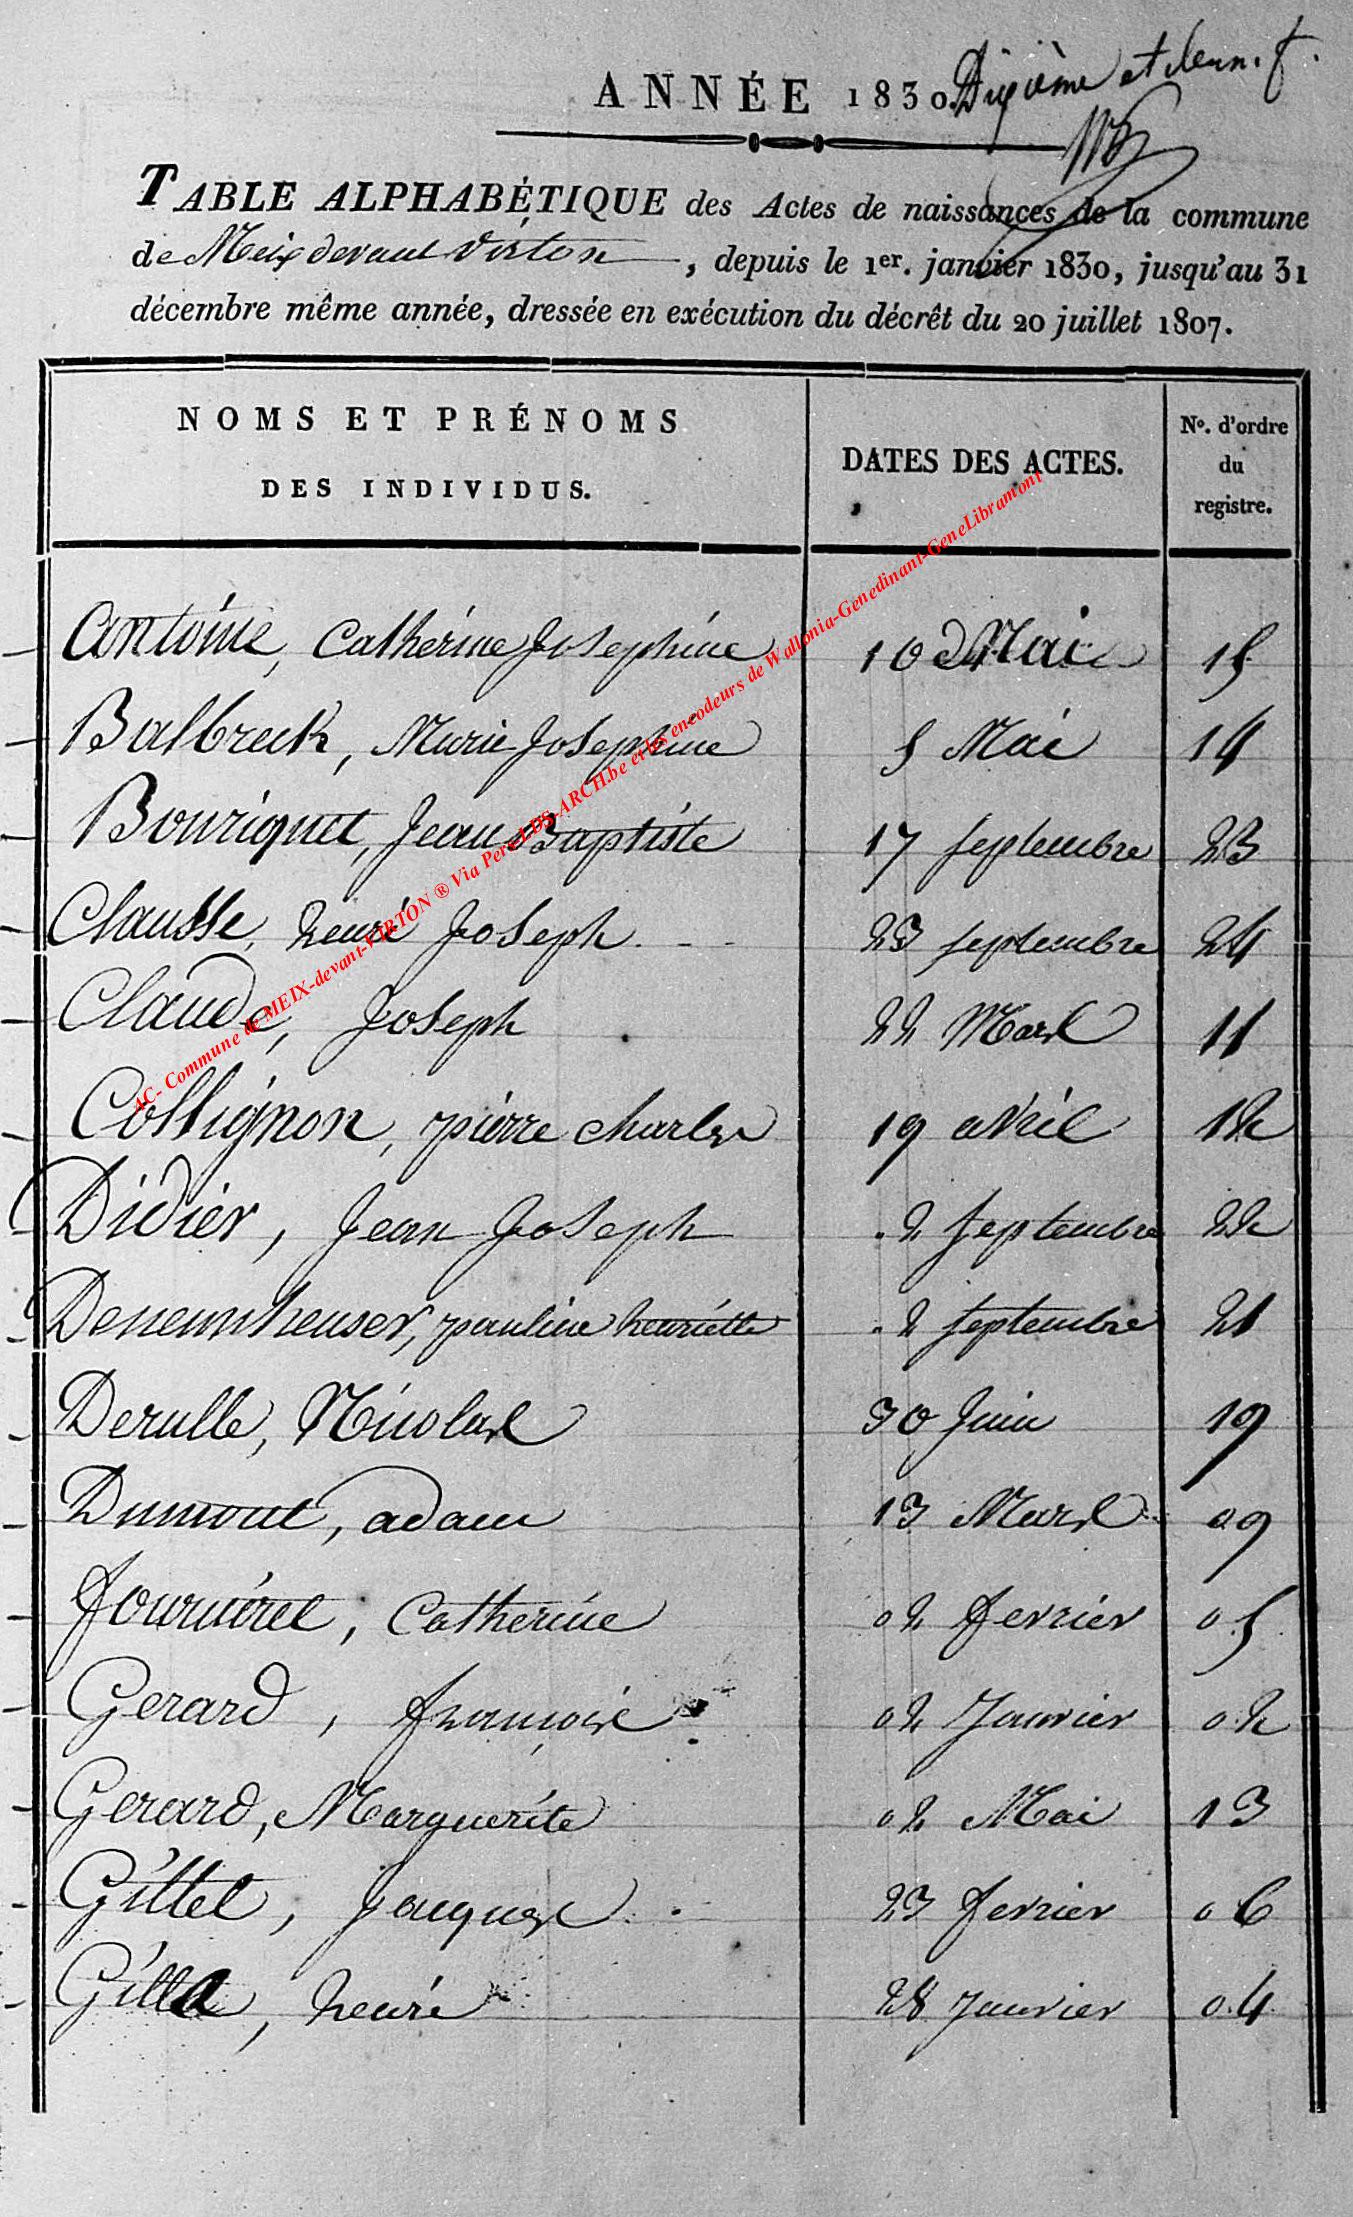 ANNÉE 1830. Dixième et deun. f.
TABLE ALPHABÉTIQUE des Actes de naissances de la commune
de Meix devant Virton, depuis le 1er. janvier 1830, jusqu'au 31
décembre même année, dressée en exécution du décrêt du 20 juillet 1807.
NOMS ET PRÉNOMS
DES INDIVIDUS.
DATES DES ACTES.
No. d'ordre
du
registre.
Antoine, Catherine Josephine 10 Mai 15
Balbreck, Marie Josephine 5 Mai 14
Bouriquet, Jean Baptiste 17 septembre 23
Clausse, henri Joseph 23 septembre 24
Claude, Joseph 22 Mars 11
Collignon, pierre charles 19 avril 12
Didier, Jean Joseph 2 septembre 22
Denennheuser, pauline henriette 2 septembre 21
Derulle, Nicolas 30 Juin 19
Dumont, adam 13 Mars 09
fournirel, Catherine 02 fevrier 05
Gerard, françois 02 Janvier 02
Gerard, Marguerite 02 Mai 13
Gillet, Jacques 23 fevrier 06
Gilla, henri 28 Janvier 04
AC- Commune de MEIX-devant-VIRTON ® Via Pers-LDS-ARCH.be et les encodeurs de Wallonia-Genedinant-GeneLibramont